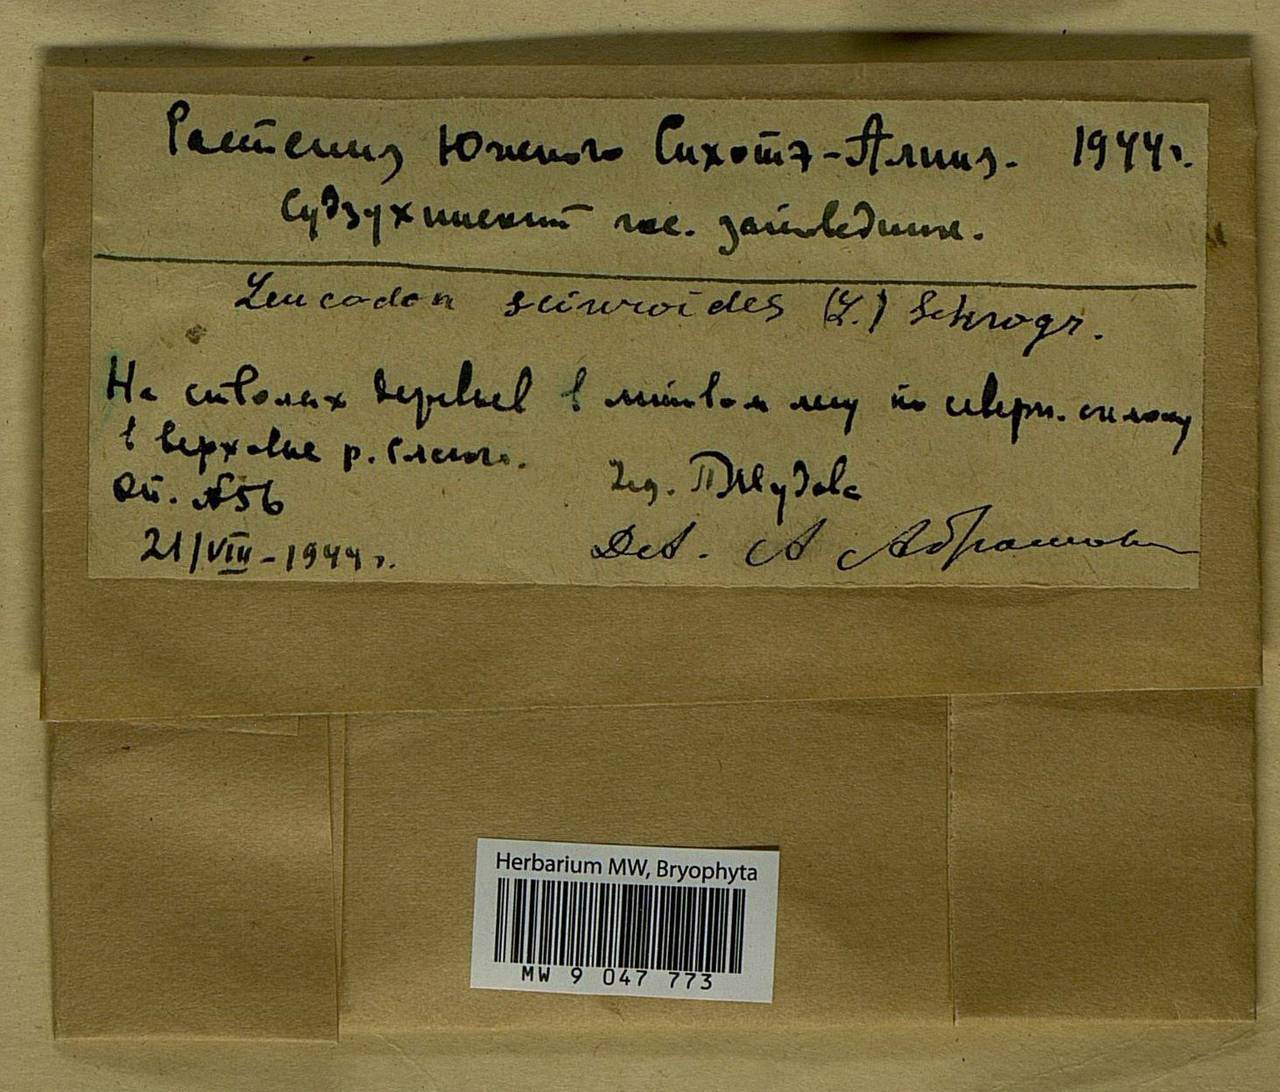 Растения Южного Сихотэ-Алиня. 1944 г.
Судзухинский гос. заповедник.
Leucodon sciuroides (L.) Schwagr.
На стволах деревьев в липовом лесу по северн. склону
в верховье р.
Оп. №56
Leg.
21/VIII-1944 г.
Det. А Абрамова
Herbarium MW, Bryophyta
MW 9 047 773